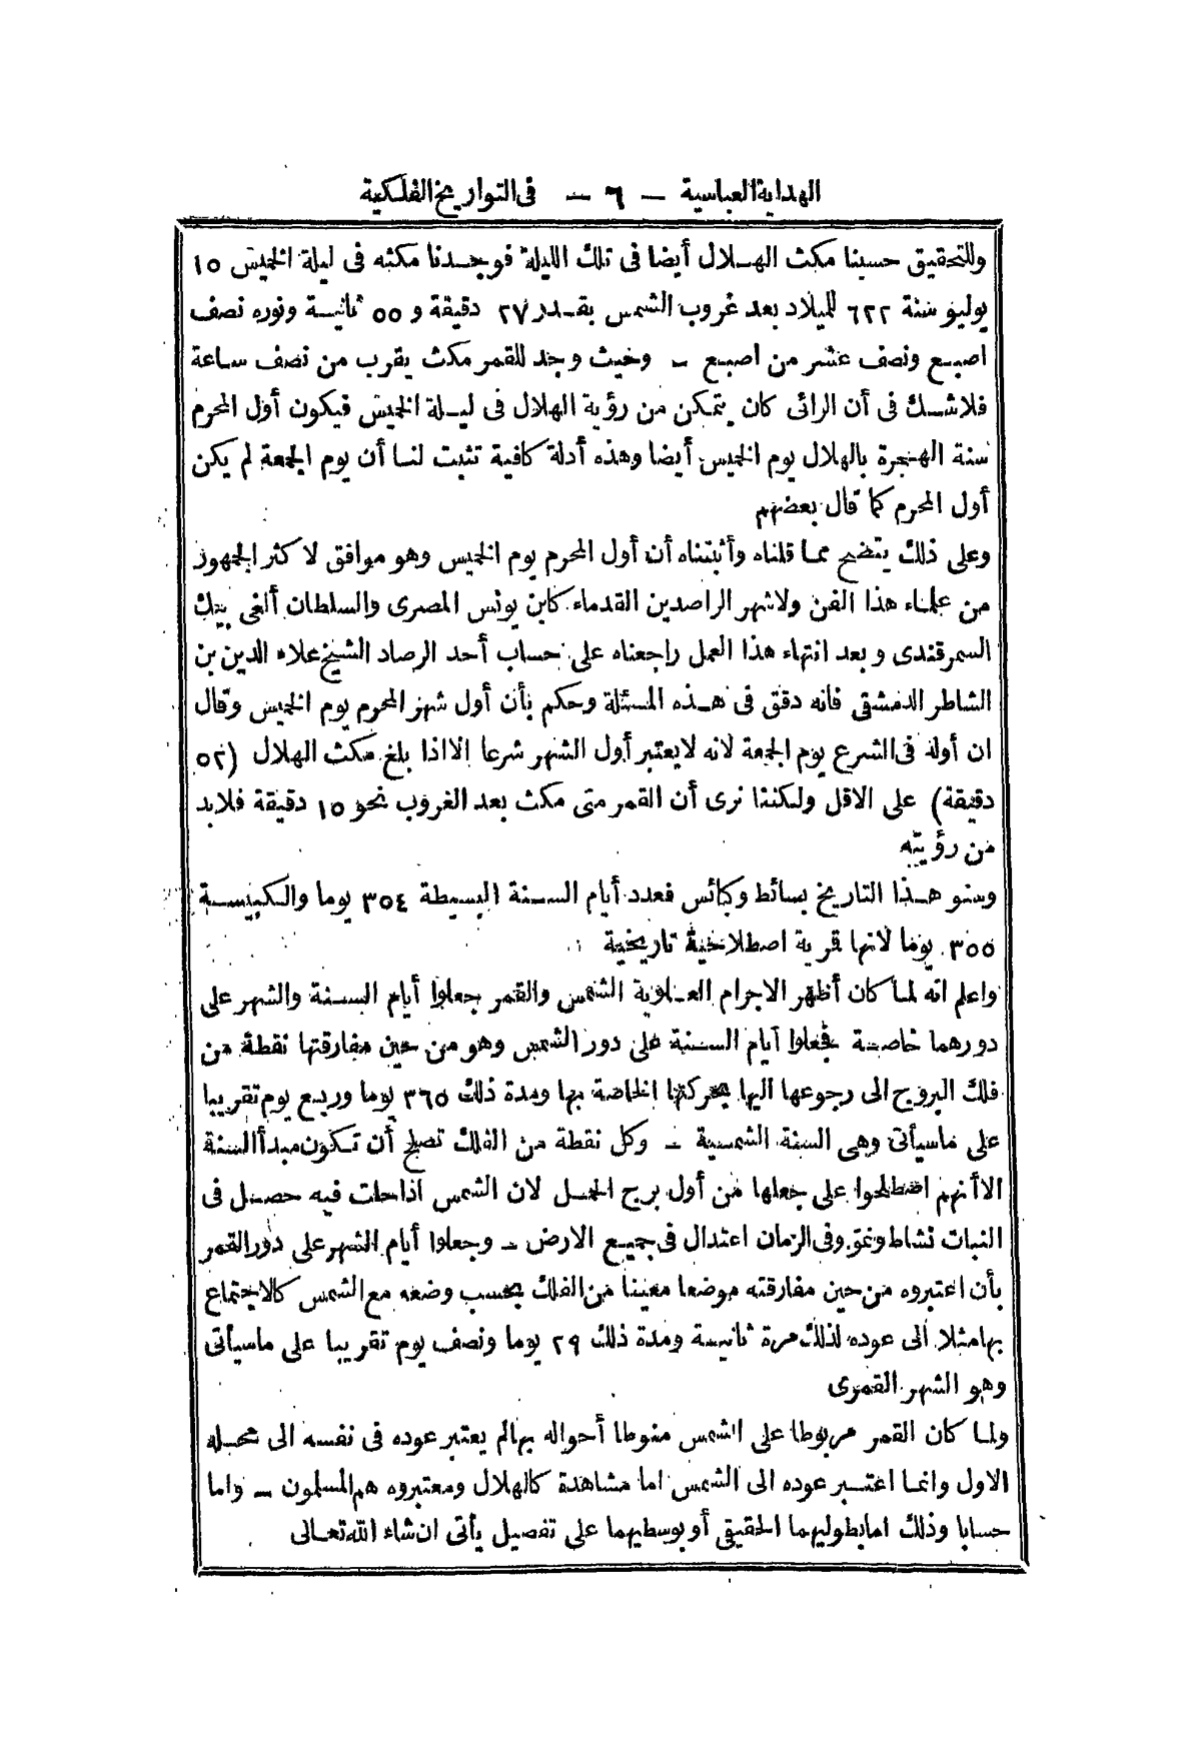 الهداية العباسية — ٦ — فى التواريخ الفلكية
وللتحقيق حسبنا مكث الهلال أيضا فى تلك الليلة فوجدنا مكثه فى ليلة الخميس ١٥
يوليو سنة ٦٢٢ للميلاد بعد غروب الشمس بقدر ٢٧ دقيقة و ٥٥ ثانية ونوره نصف
اصبع ونصف عشر من اصبع — وحيث وجد للقمر مكث يقرب من نصف ساعة
فلاشك فى أن الرائى كان يتمكن من رؤية الهلال فى ليلة الخميس فيكون أول المحرم
سنة الهجرة بالهلال يوم الخميس أيضا وهذه أدلة كافية تثبت لنا أن يوم الجمعة لم يكن
أول المحرم كما قال بعضهم
وعلى ذلك يتضح مما قلناه وأثبتناه أن أول المحرم يوم الخميس وهو موافق لاكثر الجمهور
من علماء هذا الفن ولاشهر الراصدين القدماء كابن يونس المصرى والسلطان ألغى بيك
السمرقندى وبعد انتهاء هذا العمل راجعناه على حساب أحد الرصاد الشيخ علاء الدين بن
الشاطر الدمشقى فانه دقق فى هذه المسئلة وحكم بأن أول شهر المحرم يوم الخميس وقال
ان أوله فى الشرع يوم الجمعة لانه لايعتبر أول الشهر شرعا الا اذا بلغ مكث الهلال (٥٢
دقيقة) على الاقل ولكننا نرى أن القمر متى مكث بعد الغروب نحو ١٥ دقيقة فلابد
من رؤيته
وسنو هذا التاريخ بسائط وكبائس فعدد أيام السنة البسيطة ٣٥٤ يوما والكبيسة
٣٥٥ يوما لانها قمرية اصطلاحية تاريخية
واعلم انه لما كان أظهر الاجرام العلوية الشمس والقمر جعلوا أيام السنة والشهر على
دورهما خاصة فجعلوا أيام السنة على دور الشمس وهو من حين مفارقتها نقطة من
فلك البروج الى رجوعها اليها بحركتها الخاصة بها ومدة ذلك ٣٦٥ يوما وربع يوم تقريبا
على ماسيأتى وهى السنة الشمسية — وكل نقطة من الفلك تصلح أن تكون مبدأ السنة
الا أنهم اصطلحوا على جعلها من أول برج الحمل لان الشمس اذا حلت فيه حصل فى
النبات نشاط ونمو وفى الزمان اعتدال فى جميع الارض — وجعلوا أيام الشهر على دور القمر
بأن اعتبروه من حين مفارقته موضعا معينا من الفلك بحسب وضعه مع الشمس كالاجتماع
بها مثلا الى عوده لذلك مرة ثانية ومدة ذلك ٢٩ يوما ونصف يوم تقريبا على ماسيأتى
وهو الشهر القمرى
ولما كان القمر مربوطا على الشمس منوطا أحواله بها لم يعتبر عوده فى نفسه الى محله
الاول وانما اعتبر عوده الى الشمس اما مشاهدة كالهلال ومعتبروه هم المسلمون — واما
حسابا وذلك اما بطوليهما الحقيقى أو بوسطيهما على تفصيل يأتى ان شاء الله تعالى